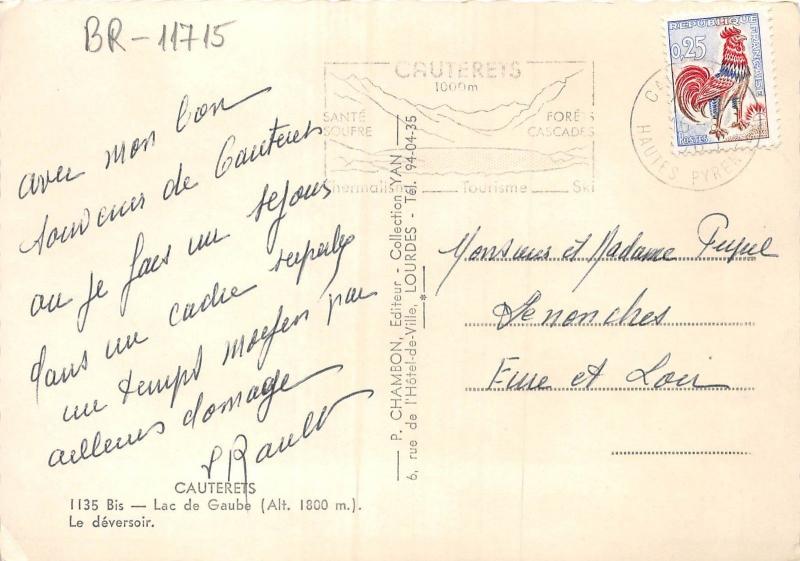 BR-11715
avec mon bon
souvenir de Cauterets
ou je fais un sejour
dans un cadre superbe
un temps moyen par
ailleurs domage
Rault
CAUTERETS
1135 Bis — Lac de Gaube (Alt. 1800 m.).
Le déversoir.
P. CHAMBON, Editeur - Collection YAN
6, rue de l'Hôtel-de-Ville, LOURDES - Tél. 94-04-35
CAUTERETS
1000m
SANTÉ
SOUFRE
FORÊTS
CASCADES
Thermalisme Tourisme Ski
REPUBLIQUE FRANÇAISE
0,25
POSTES
HAUTES PYRENEES
Monsieur et Madame
Senonches
Eure et Loir